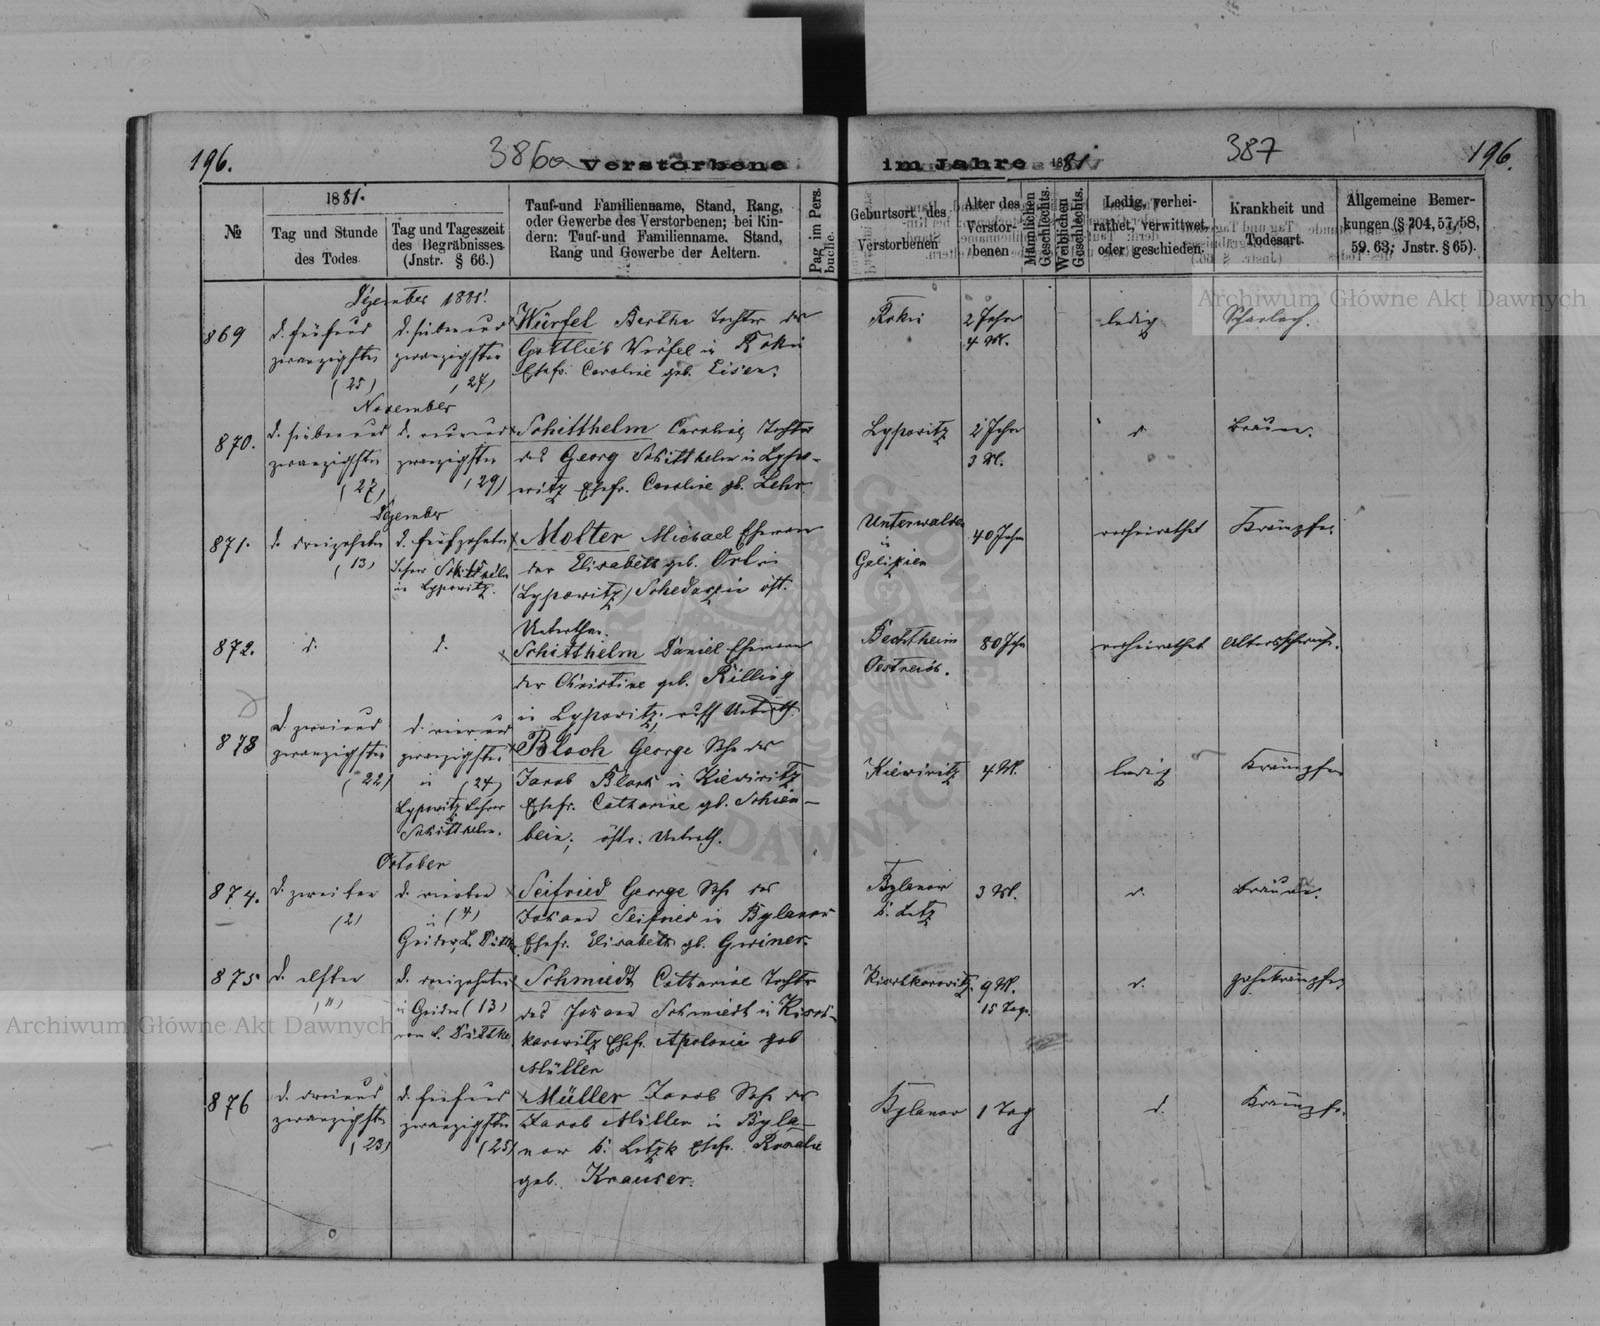 196.
386a
Verstorbene
im Jahre 1881.
387
196.
№
1881.
Tag und Stunde des Todes.
Tag und Tageszeit des Begräbnisses. (Instr. § 66.)
Tauf-und Familienname, Stand, Rang, oder Gewerbe des Verstorbenen; bei Kindern: Tauf-und Familienname. Stand, Rang und Gewerbe der Aeltern.
Pag. im Pers. buche.
Geburtsort des Verstorbenen
Alter des Verstorbenen
Männlichen Geschlechts.
Weiblichen Geschlechts.
Ledig, verheirathet, verwittwet, oder geschieden.
Krankheit und Todesart.
Allgemeine Bemerkungen (§ 204, 57, 58, 59, 63; Jnstr. § 65).
Dezember 1881.
869
d. fünfund
zwanzigsten
(25)
d. siebenund
zwanzigsten
(27)
Würfel Bertha Tochter des
Gottlieb Würfel in Rokin
Ehefr. Caroline geb. Eisen.
Rokin
2 Jahr
4 M.
ledig
Scharlach.
November
870.
d. siebenund
zwanzigsten
(27)
d. neunund
zwanzigsten
(29)
Schitthelm Caroline Tochter
des Georg Schitthelm in Lypo-
witz Ehefr. Caroline gb. Lehr
Lypowitz
2 Jahr
3 M.
d.
Bräune.
Dezember
871.
d. dreizehnten
(13)
d. fünfzehnten
Lehrer Schitthelm
in Lypowitz.
Molter Michael Ehemann
der Elisabeth geb. Ort in
(Lypowitz)
öst.
Unterthan.
Unterwalden
in
Galizien
40 Jahr
verheirathet
Krämpfe.
872.
d.
d.
Schitthelm Daniel Ehemann
der Christine geb. Killing
in Lypowitz; russ Unterth.
Bechtheim
Oestreich.
80 Jahr
verheirathet
Altersschwäche.
873
d. zweiund
zwanzigsten
(22)
d. vierund
zwanzigsten
in (24)
Lypowitz Lehrer
Schitthelm.
Bloch George Sohn des
Jacob Bloch in Kiewiritz
Ehefr. Catharine gb. Schien-
bein; östr. Unterth.
Kiewiritz
4 M.
ledig
Krämpfe
October
874.
d. zweiten
(2)
d. vierten
in (4)
Seifried George Sohn des
Johann Seifried in Bylanow
Ehefr. Elisabeth gb. Greiner.
Bylanow
b. Lutz
3 M.
d.
Bräune.
875
d. elften
d. dreizehnten
(13)
Schmiedt Catharine Tochter
des Johann Schmiedt in
karowitz Ehefr. Apolonie geb
Müller
9 M.
15 Tage.
d.
876
d. dreiund
zwanzigsten
(23)
d. fünfund
zwanzigsten
(25)
Müller Jacob Sohn des
Jacob Müller in Byla-
now b. Lutzk Ehefr. Rosalie
geb. Krauser.
Bylanow
1 Tag
d.
Krämpfe.
Archiwum Główne Akt Dawnych
Archiwum Główne Akt Dawnych